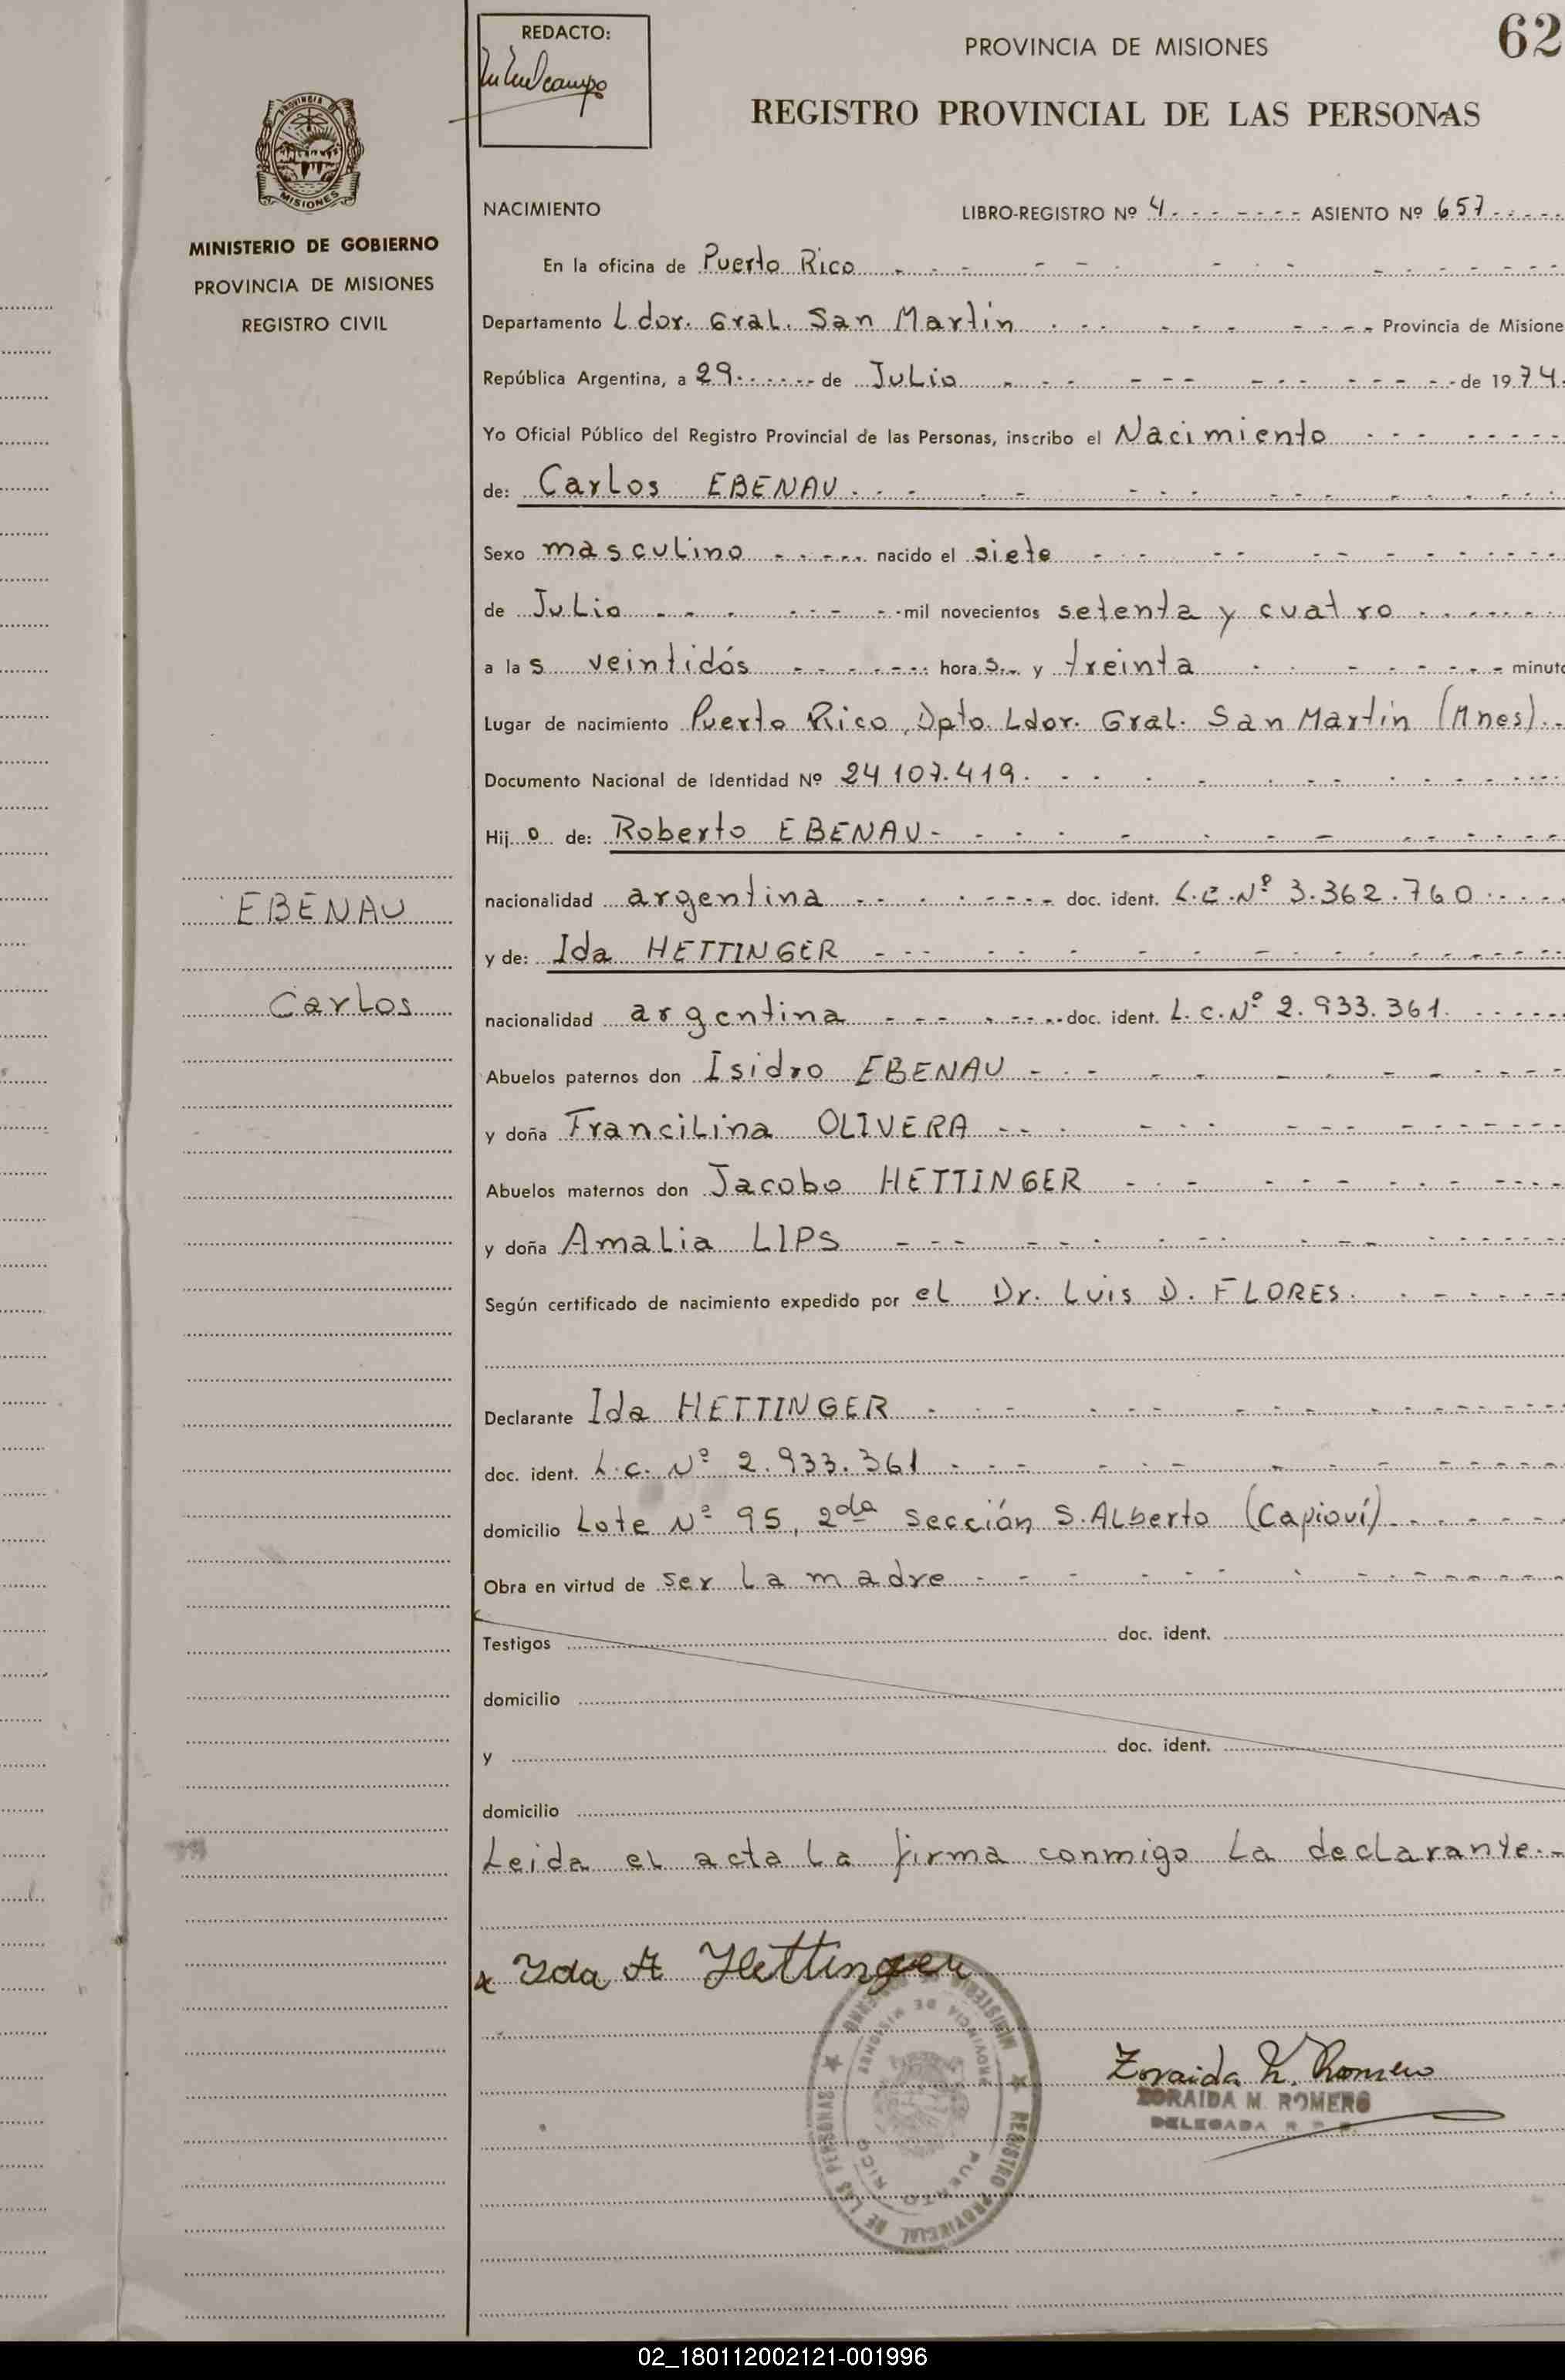 REDACTO:
PROVINCIA DE MISIONES
62
REGISTRO PROVINCIAL DE LAS PERSONAS
MISIONES
MINISTERIO DE GOBIERNO
PROVINCIA DE MISIONES
REGISTRO CIVIL
NACIMIENTO LIBRO-REGISTRO Nº 4 ASIENTO Nº 657
En la oficina de Puerto Rico
Departamento Ldor. Gral. San Martín Provincia de Misione
República Argentina, a 29 de Julio de 1974
Yo Oficial Público del Registro Provincial de las Personas, inscribo el Nacimiento
de: Carlos EBENAU
Sexo masculino nacido el siete
de Julio mil novecientos setenta y cuatro
a las veintidós horas y treinta minuto
Lugar de nacimiento Puerto Rico, Dpto. Ldor. Gral. San Martín (Mnes).
Documento Nacional de Identidad Nº 24 107.419.
Hijo de: Roberto EBENAU
nacionalidad argentina doc. ident. L.E.Nº 3.362.760
y de: Ida HETTINGER
nacionalidad argentina doc. ident. L.C.Nº 2.933.361.
Abuelos paternos don Isidro EBENAU
y doña Francilina OLIVERA
Abuelos maternos don Jacobo HETTINGER
y doña Amalia LIPS
Según certificado de nacimiento expedido por el Dr. Luis D. FLORES.
Declarante Ida HETTINGER
doc. ident. L.C. Nº 2.933.361
domicilio Lote Nº 95, 2da Sección S. Alberto (Capioví)
Obra en virtud de ser la madre
Testigos doc. ident.
domicilio
y doc. ident.
domicilio
Leida el acta la firma conmigo la declarante.
EBENAU
Carlos
x Ida A Hettinger
Zoraida M. Romero
ZORAIDA M. ROMERO
DELEGADA R. P. P.
MINISTERIO DE GOBIERNO ★ REGISTRO PROVINCIAL DE LAS PERSONAS ★
PROVINCIA DE MISIONES
PUERTO RICO
02_180112002121-001996